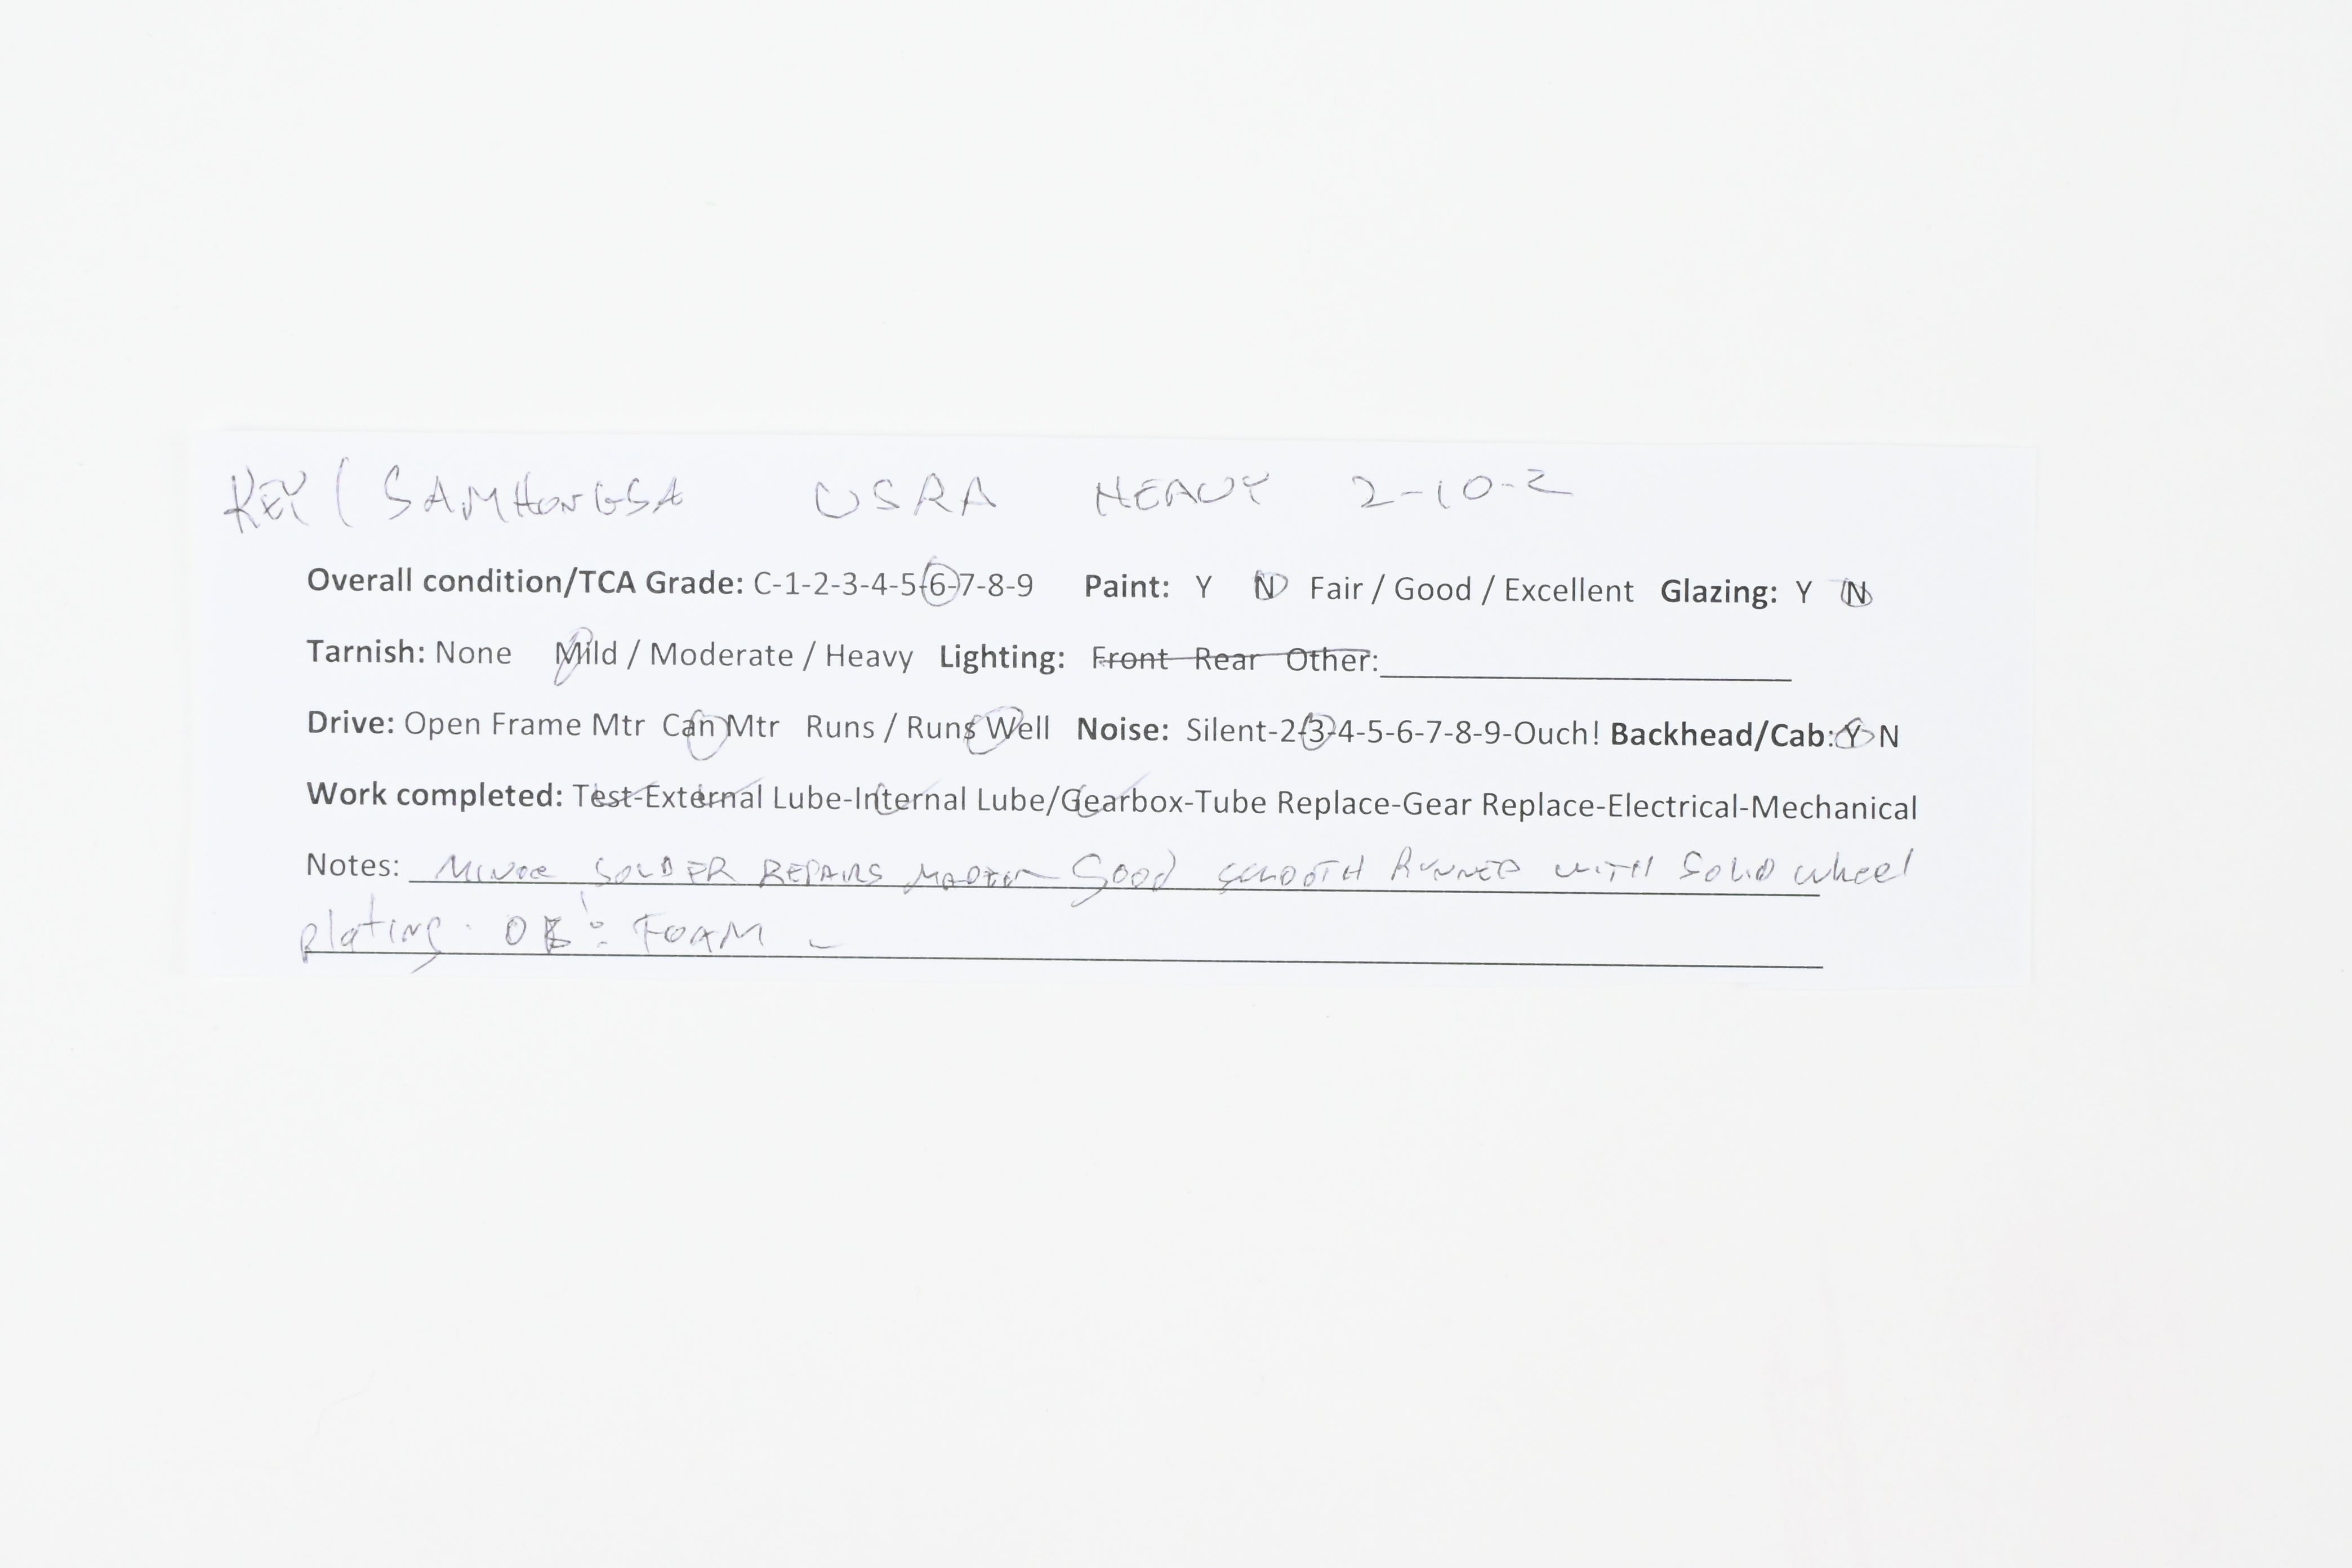 KEY / SAMHONGSA USRA HEAVY 2-10-2
Overall condition/TCA Grade: C-1-2-3-4-5-6-7-8-9 Paint: Y N Fair / Good / Excellent Glazing: Y N
Tarnish: None Mild / Moderate / Heavy Lighting: Front Rear Other:
Drive: Open Frame Mtr Can Mtr Runs / Runs Well Noise: Silent-2-3-4-5-6-7-8-9-Ouch! Backhead/Cab: Y N
Work completed: Test-External Lube-Internal Lube/Gearbox-Tube Replace-Gear Replace-Electrical-Mechanical
Notes: MINOR SOLDER REPAIRS Good SMOOTH RUNNER WITH Solid wheel
plating. FOAM